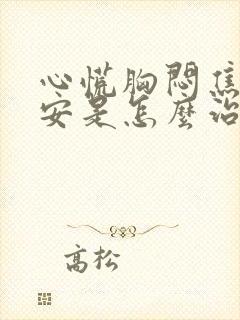 心慌胸悶焦
安是怎麼治
高松